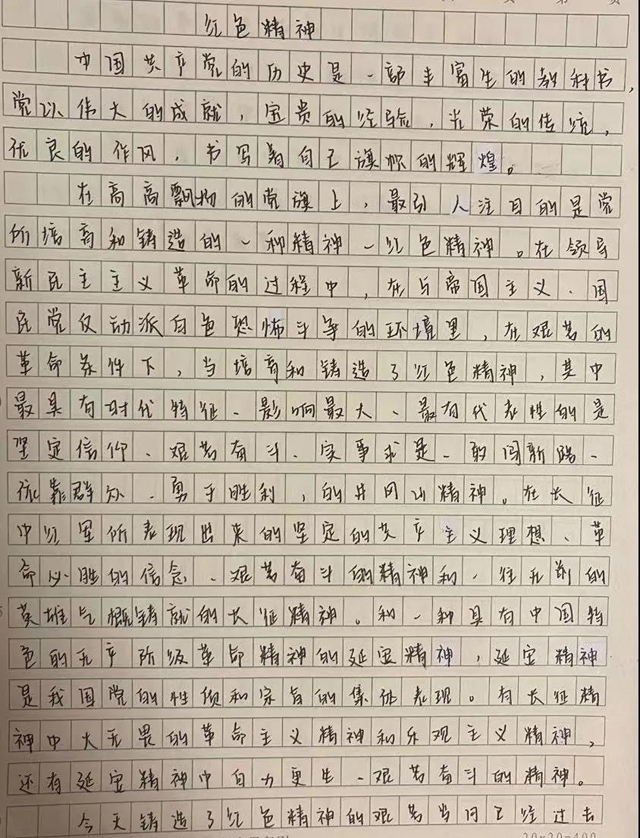 红色精神
中国共产党的历史是一部丰富生的教科书，
党以伟大的成就，宝贵的经验，光荣的传统，
优良的作风，书写着自己旗帜的辉煌。
在高高飘物的党旗上，最引人注目的是党
所培育和铸造的一种精神—红色精神。在领导
新民主主义革命的过程中，在与帝国主义、国
民党反动派白色恐怖斗争的环境里，在艰苦的
革命条件下，当培育和铸造了红色精神，其中
最具有时代特征、影响最大、最有代表性的是
坚定信仰、艰苦奋斗、实事求是、敢闯新路、
依靠群众、勇于胜利，的井冈山精神。在长征
中红军所表现出来的坚定的共产主义理想、革
命必胜的信念、艰苦奋斗的精神和一往无前的
英雄气概铸就的长征精神。和一种具有中国特
色的无产阶级革命精神的延安精神，延安精神
是我国党的性质和宗旨的集征表现。有长征精
神中大无畏的革命主义精神和乐观主义精神，
还有延安精神中自力更生、艰苦奋斗的精神。
今天铸造了红色精神的艰苦岁月已经过去
20×20=400